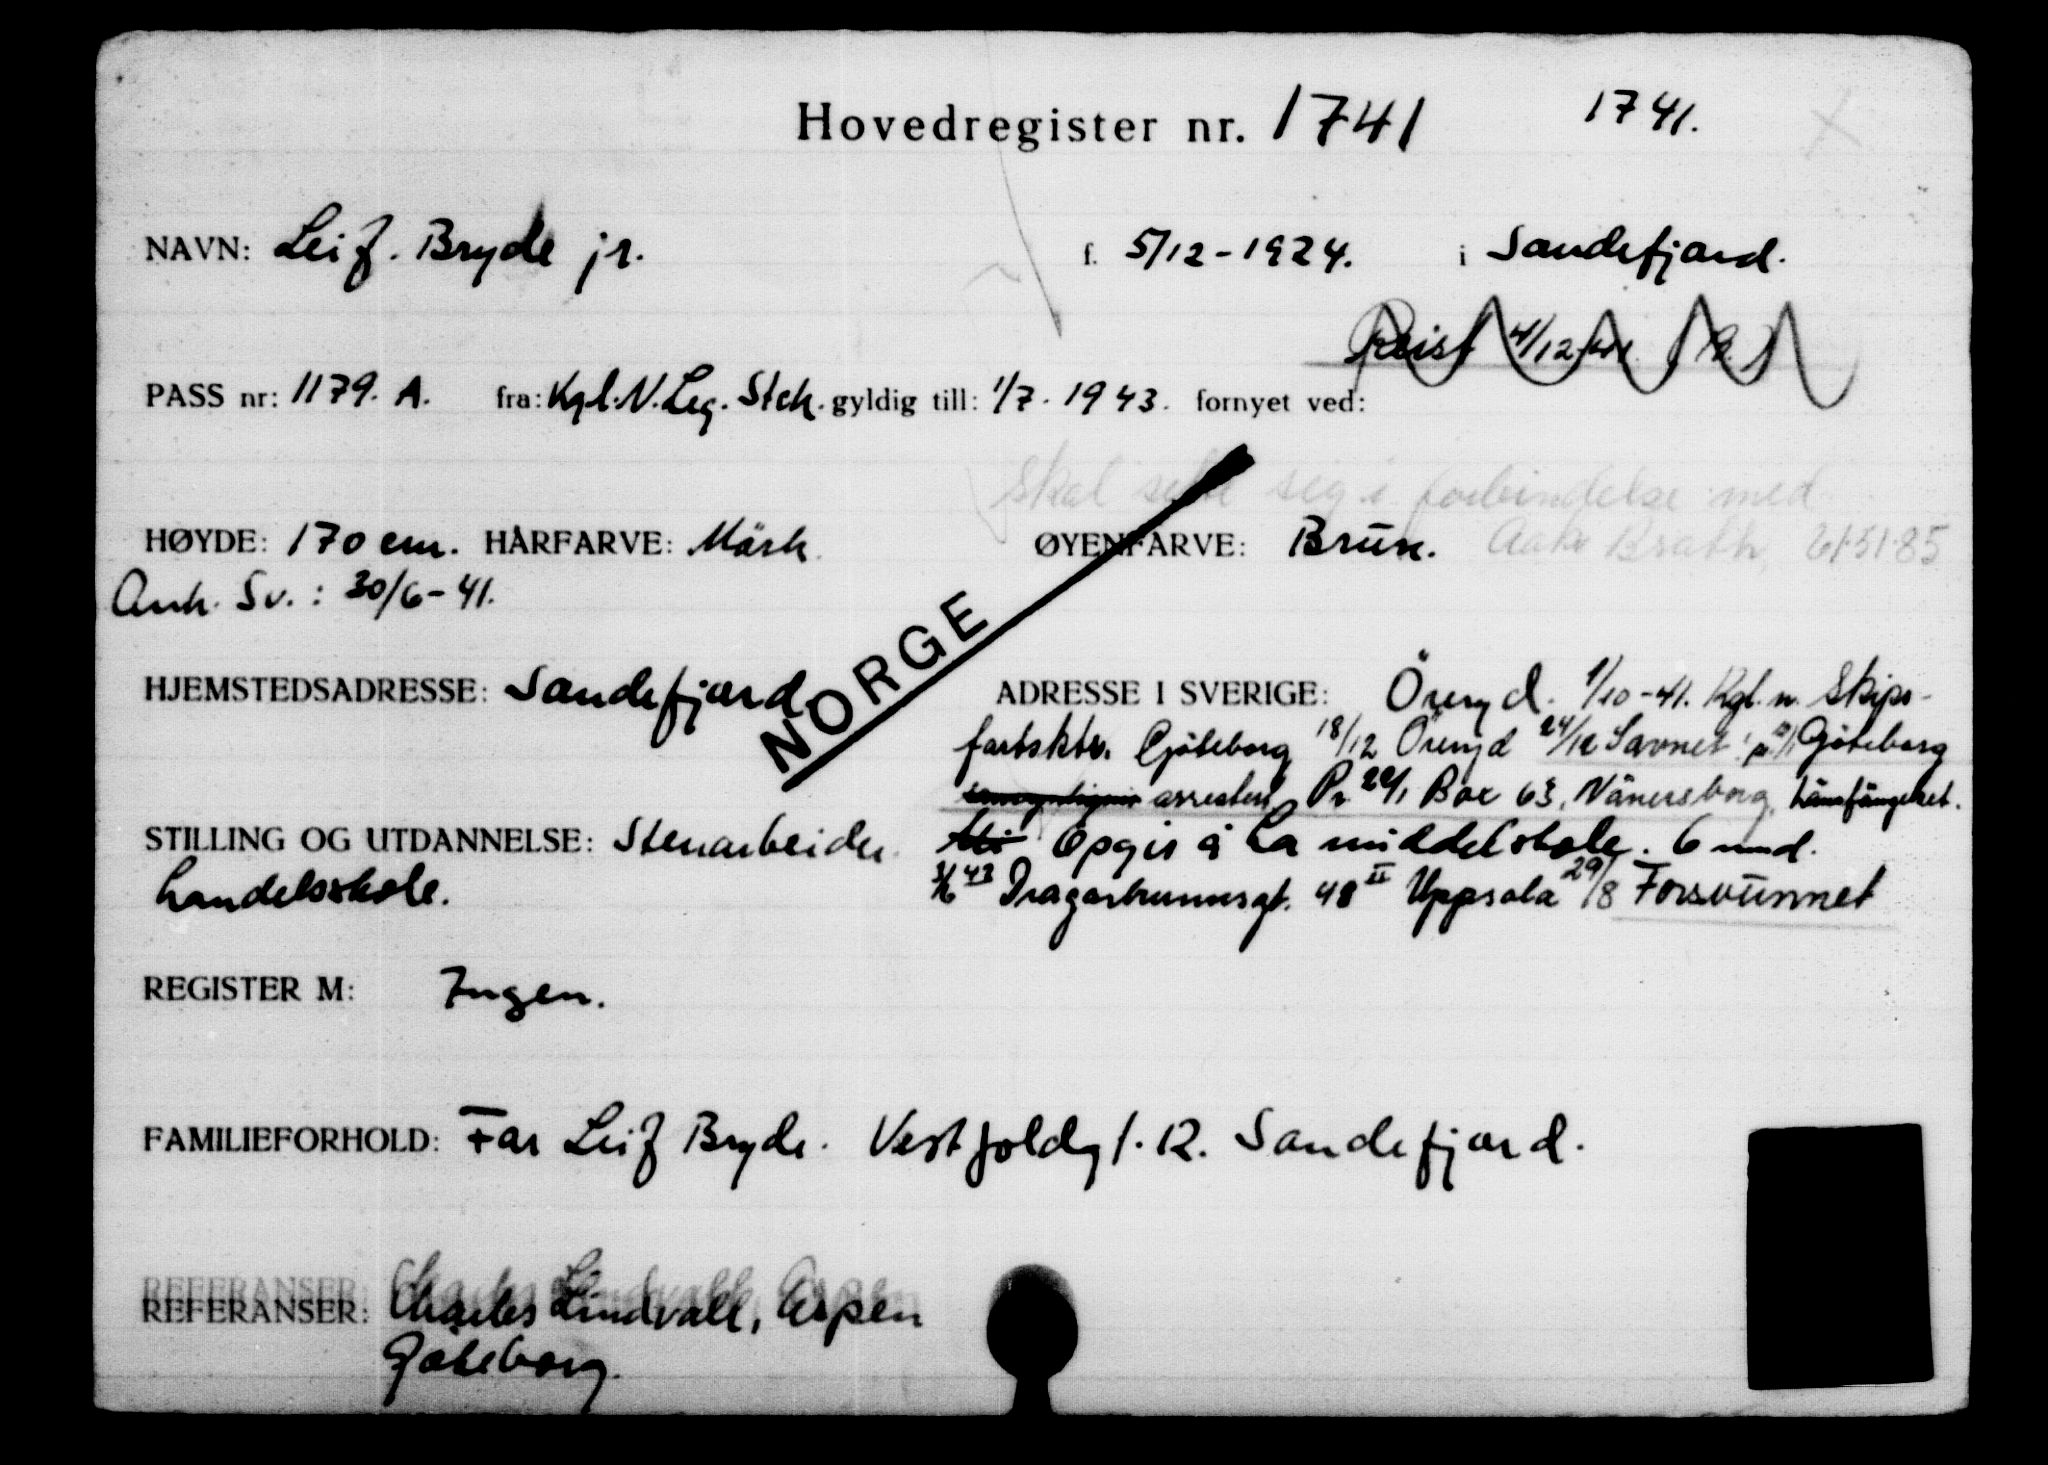 Hovedregister nr. 1741 1741.
NAVN: Leif. Bryde jr. f. 5/12-1924. i Sandefjord.
Reist 4/12
PASS nr: 1179. A. fra: Kgl. N. Leg. Stck. gyldig till: 1/7. 1943. fornyet ved:
Skal sette sig i forbindelse med
HØYDE: 170 cm. HÅRFARVE: Mörk. ØYENFARVE: Brun. Aake Brath, 61-51-85
Ank. Sv.: 30/6-41.
NORGE
HJEMSTEDSADRESSE: Sandefjord ADRESSE I SVERIGE: Öreryd. 1/10-41. Kgl. n. Skips-
fartsktr. Gjöteborg 18/12 Öreryd 24/12 Savnet! Göteborg
arrestert Pr 22/1 Box 63, Vänersborg, Länsfängelset.
STILLING OG UTDANNELSE: Stenarbeider. Opgis å ha middelskole. 6 mnd.
handelsskole. 3/6 43 Dragarbrunnsgt. 48 II Uppsala 29/8 Forsvunnet
REGISTER M: Ingen.
FAMILIEFORHOLD: Far Leif Bryde. Vestfoldgt. 12. Sandefjord.
REFERANSER: Charles Lindvall, Aspen
Göteborg.